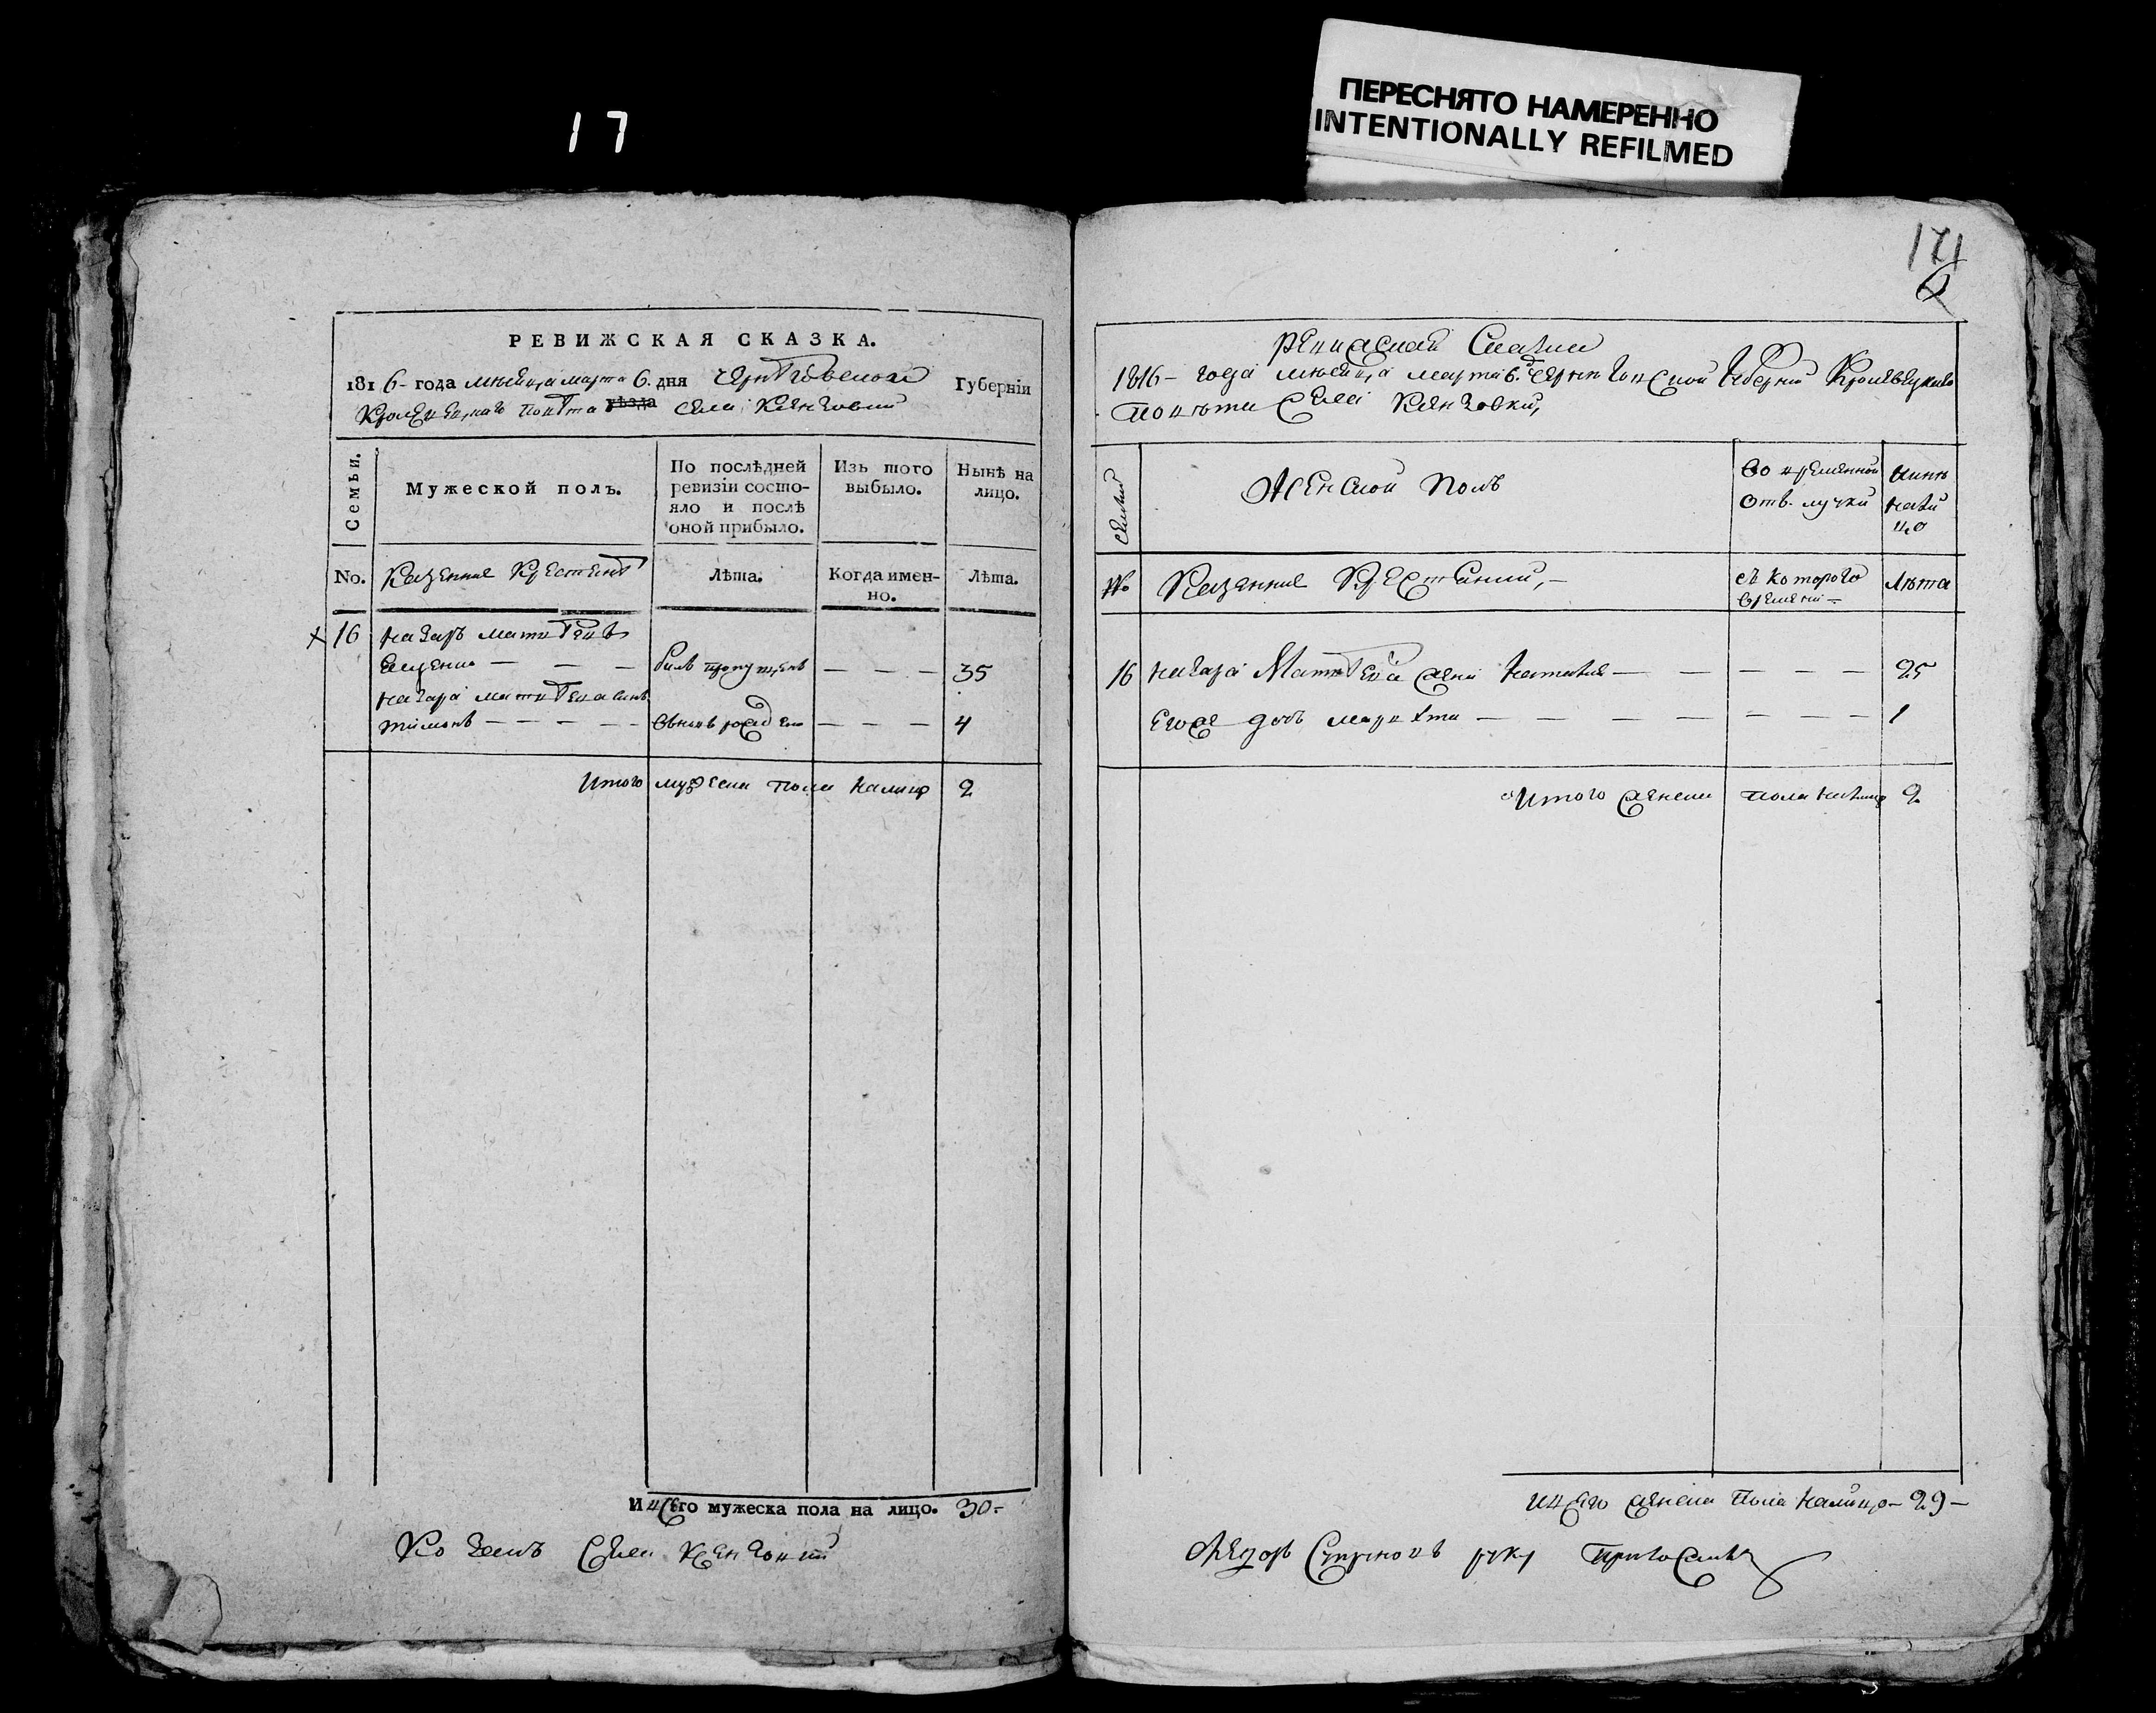 17
ПЕРЕСНЯТО НАМЕРЕННО
INTENTIONALLY REFILMED
171
6
РЕВИЖСКАЯ СКАЗКА.
1816- года месяца марта 6. дня Черниговской Губерніи
Кролевецкаго повета уѣзда села
Семьи.
Мужеской полъ.
По послѣдней ревизіи состояло и послѣ оной прибыло.
Изъ того выбыло.
Нынѣ на лицо.
No. Казенние Крестяне
Лѣта.
Когда именно.
Лѣта.
16 Назаръ Матвеевъ
билъ пропущенъ — — — 35
Назара Матвеева синъ
Тимошъ — — — — вновь рожденъ — — — 4
Итого мужеска пола налицо 2
Ивсего мужеска пола на лицо. 30-
Козакъ Села
Сказки
1816- года месяца марта 6. Черниговской Губерніи Кролевецкаго
повѣта Села
Семьи
Женской Полъ
Во временной отлучки
Нинѣ налицо
No Казенние Крестяний,-
съ которого времени-
Лѣта
16 Назара Матвеева жена Наталия — — — — — — 25
Егоже дочь — — — — — — — — — 1
Итого женска пола налицо 2
Ивсего женска пола налицо- 29-
руку приложилъ